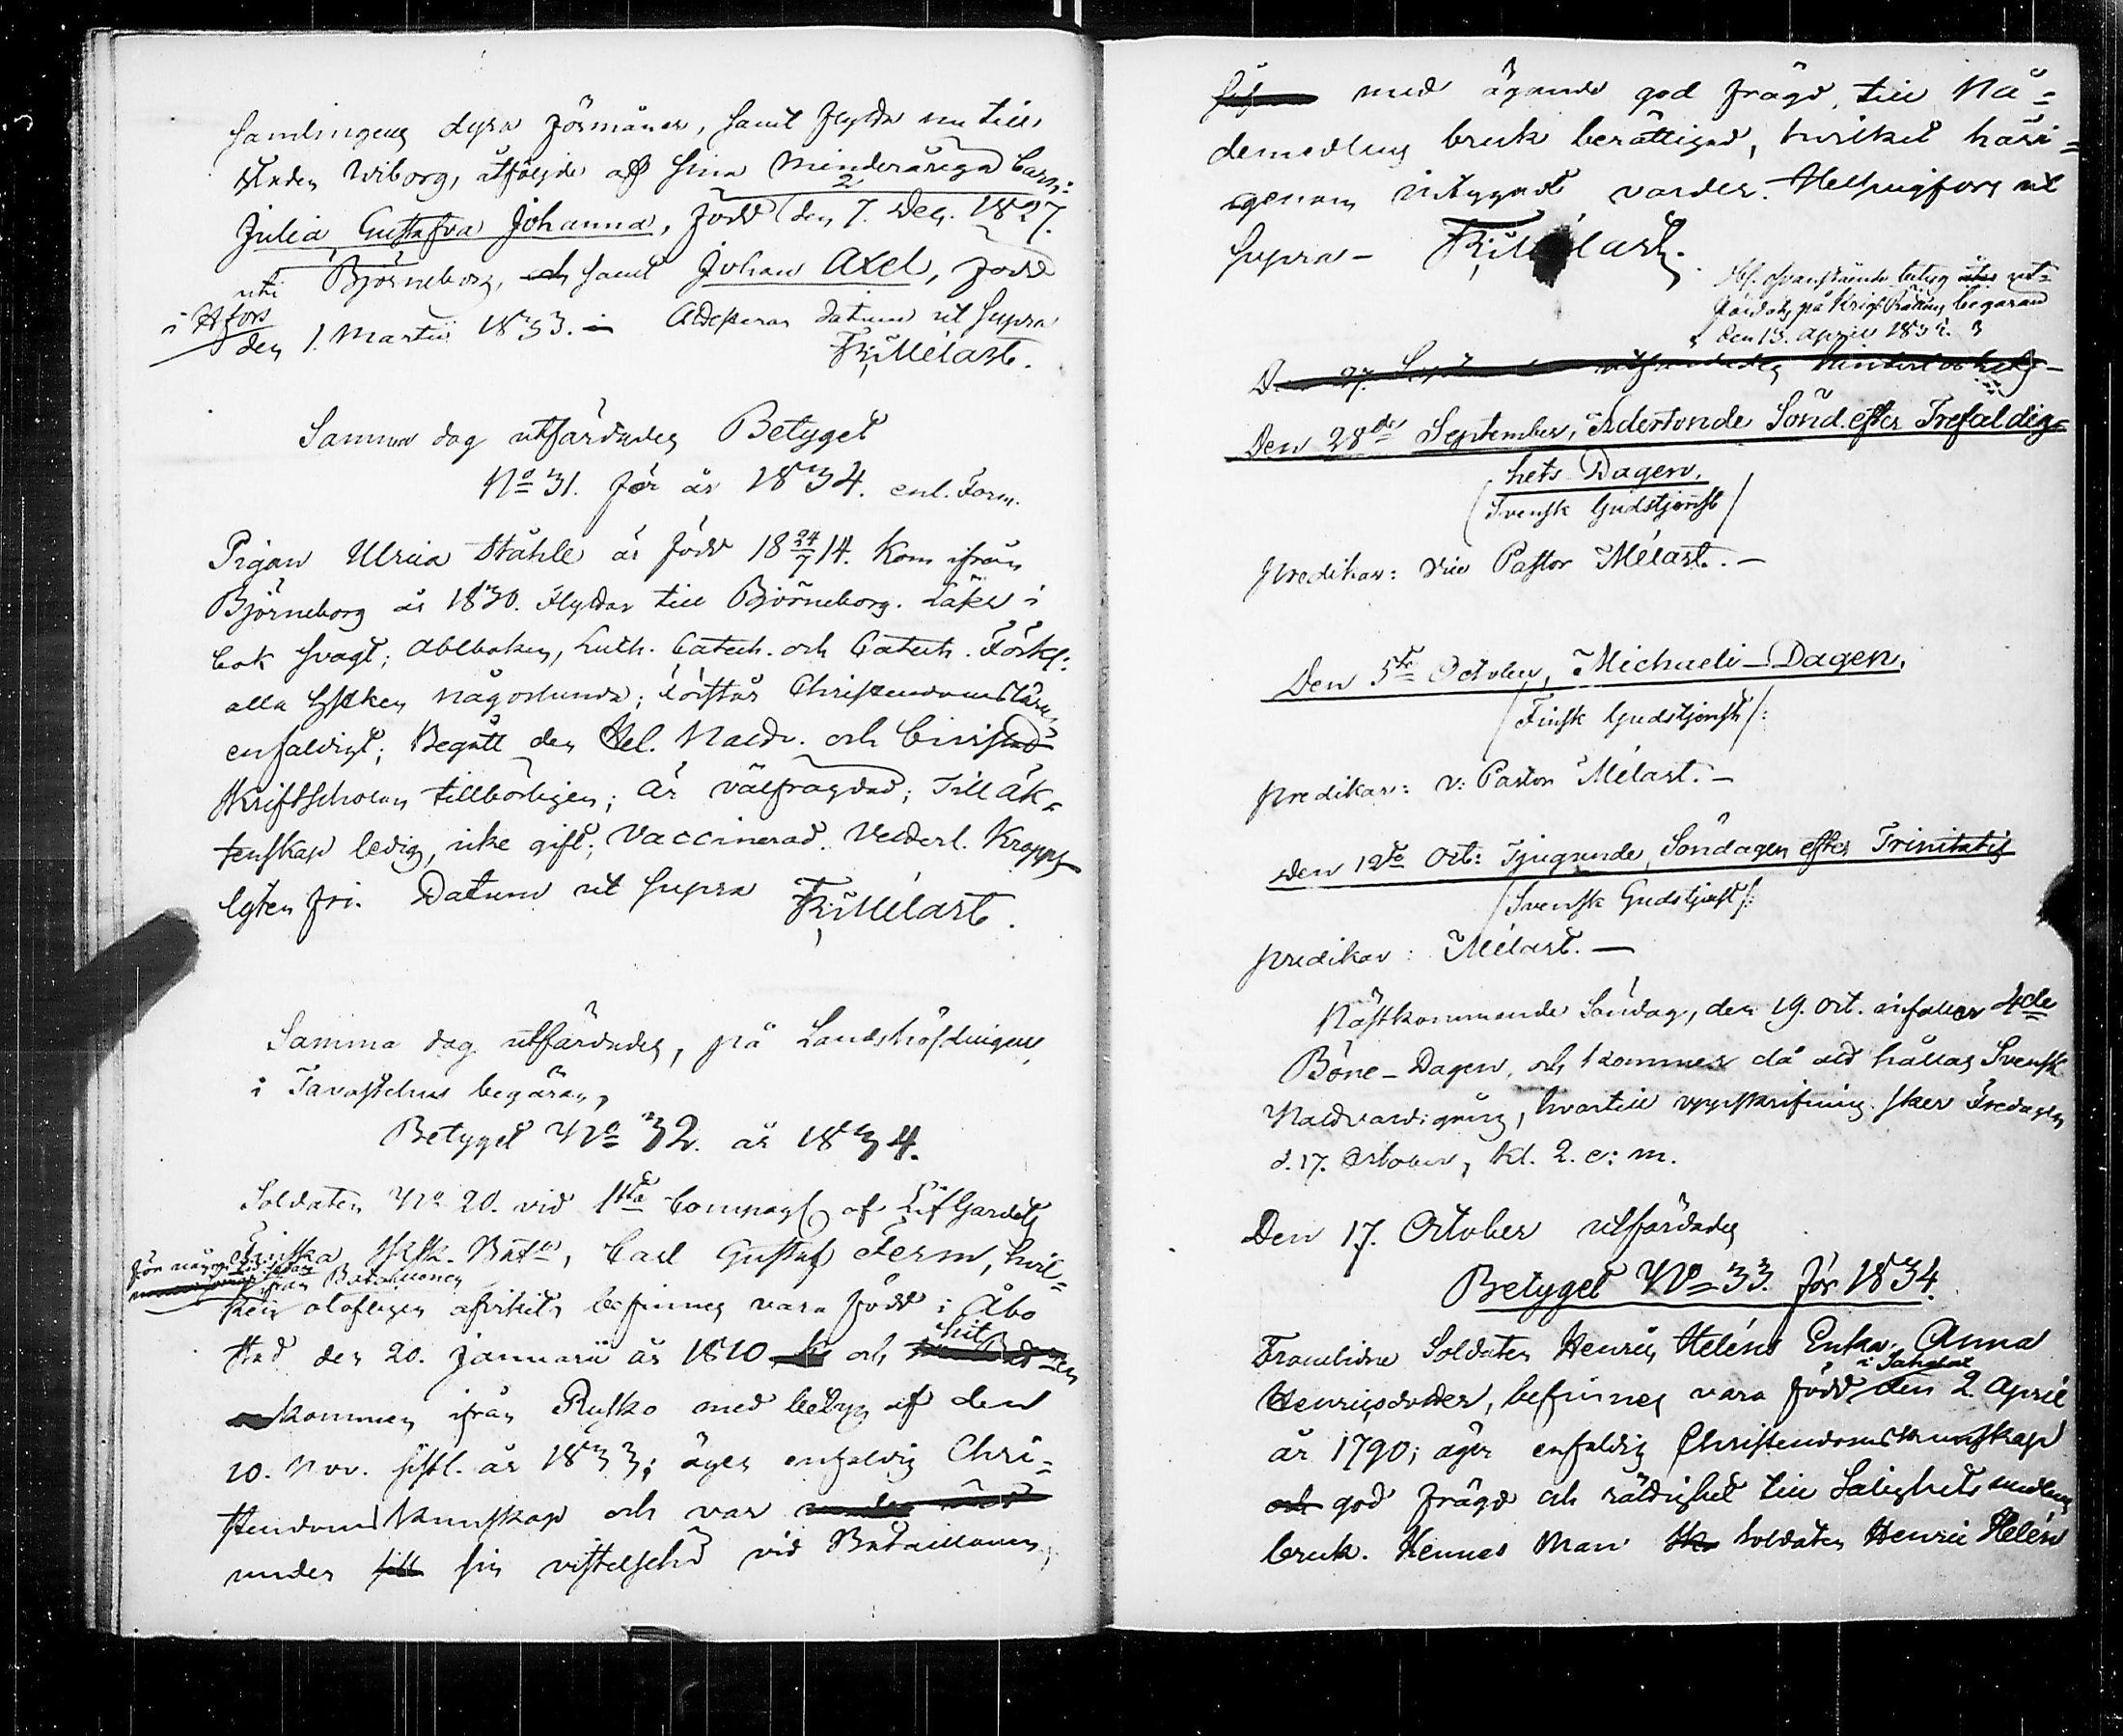 samlingens dyra förmåner, samt flyttar nu till
staden Wiborg, åtföljde af sina minderåriga barn:
2
Julia Gustafva Johanna, född den 7. Dec. 1827.
uti Björneborg, och samt Johan Axel, född
i Hfors
den 1. Martii 1833. Attesterar datum ut supra
Fr. Mélart.
Samma dag utfärdades Betyget
No 31. för år 1834. enl. Form.
Pigan Ulrica Ståhle är född 18 24/7 14. Kom ifrån
Björneborg år 1830. Flyttar till Björneborg. Läser i
bok svagt; Abcboken, Luth. Catech. och Catech. Förkl:
alla stycken någorlunda; Förstår Christendomsläran
enfaldigt; Begått den Hel. Nattv. och bivistad
skriftskolan tillbörligen; Är välfrägdad; Till äk-
tenskap ledig, icke gift; Vaccinerad. Vederl. Kropps
lyten fri. Datum ut supra Fr. Mélart.
Samma dag utfärdades, på Landshöfdingens
i Tavastehus begäran,
Betyget No 32. år 1834.
Soldaten No 20. vid 1sta Compagt af Lif Gardets
Finska Sksk. Batn, Carl Gustaf Ferm, hvil-
för någon tid sedan
ifrån Bataillonen
ken olofligen afvikit, befinnes vara född i Åbo
stad den 20. Januarii år 1810 och hit
kommen ifrån Rusko med betyg af den
10. Nov. sistl. år 1833; äger enfaldig Chri-
stendomskunskap och var
under sin vistelsetid vid Bataillonen,
med ägande god frägd, till Nå-
demedlens bruk berättigad, hvilket häri-
genom intygadt varder. Helsingfors ut
supra - Fr. Mélart.
Af ofvanstående betyg utfärdades på Krigs Rättens begäran
den 13. April 183
Den 27. Sept
Den 28de September, Adertonde Sönd. efter Trefaldig-
hets Dagen.
/Svensk Gudstjenst/
predikar: Vice Pastor Mélart. -
Den 5te October, Michaeli-Dagen.
/Finsk Gudstjenst/:
predikar: v: Pastor Mélart. -
Den 12te Oct: Tjugunde Söndagen efter Trinitatis
/Svensk Gudstjenst/:
predikar: Mélart. -
Nästkommande Söndag, den 19. Oct. infaller 4de
Böne-Dagen, och kommer då att hållas Svensk
Nattvardsgång, hvartill uppskrifning sker Fredagen
d. 17. October, kl. 2. e: m.
Den 17. October utfärdades
Betyget No 33. för 1834.
Framlidne Soldaten Henric Heléns Enka Anna
i
Henricsdotter, befinnes vara född den 2 April
år 1790; äger enfaldig Christendomskunskap
och god frägd och rättighet till Salighetsmedlens
bruk. Hennes Man Soldaten Henric Helén